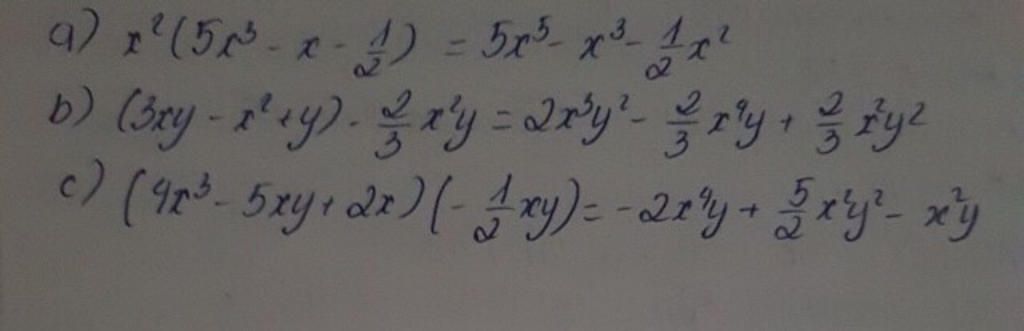 a) x²(5x³ - x - 1/2) = 5x⁵ - x³ - 1/2 x²
b) (3xy - x² + y) · 2/3 x²y = 2x³y² - 2/3 x⁴y + 2/3 x²y²
c) (4x³ - 5xy + 2x)(- 1/2 xy) = -2x⁴y + 5/2 x²y² - x²y